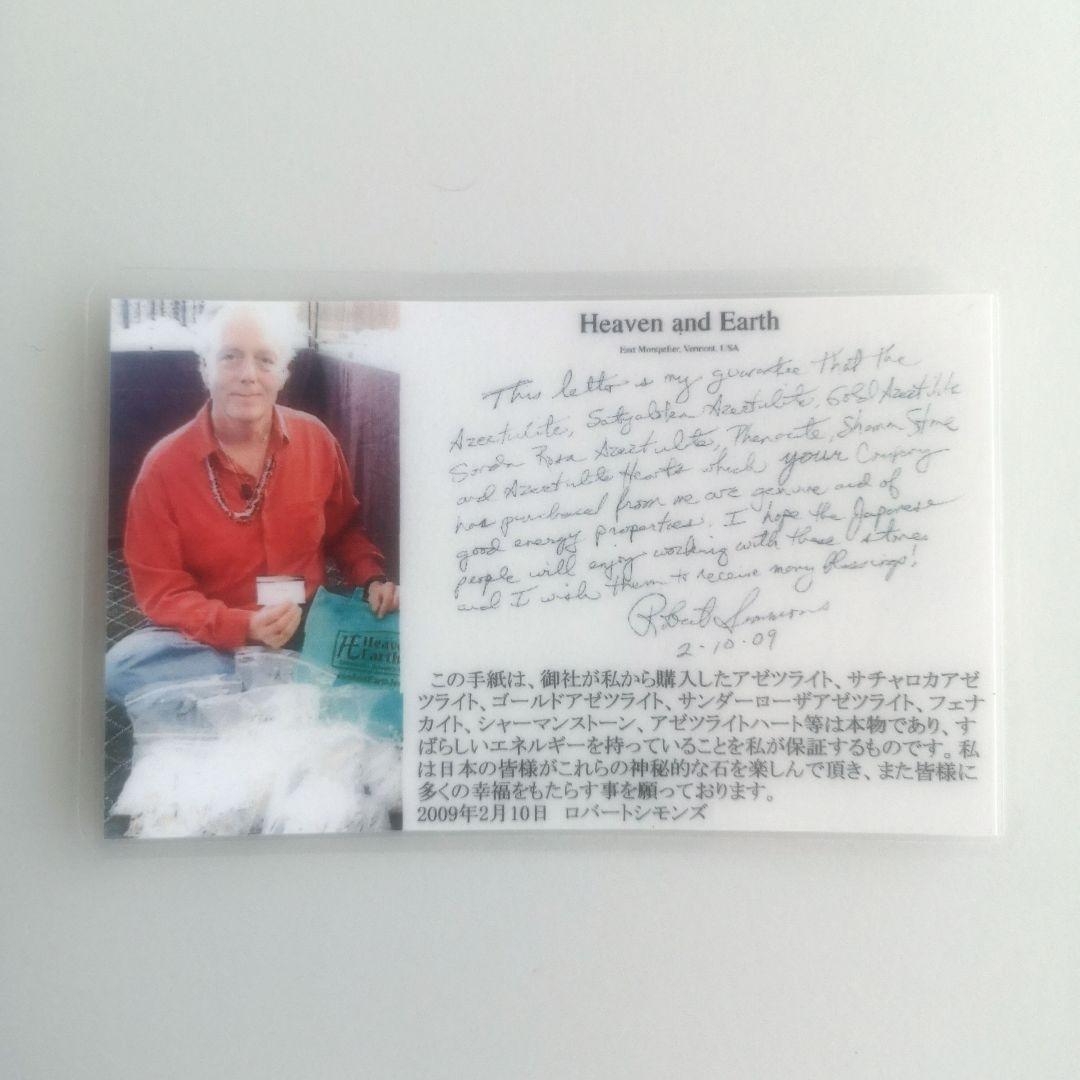 Heaven and Earth
East Montpelier, Vermont, USA
This letter is my guarantee that the
Azeztulite, Satyaloka Azeztulite, Gold Azeztulite
Sanda Rosa Azeztulite, Phenacite, Shaman Stone
and Azeztulite Hearts which your Company
has purchased from me are genuine and of
good energy properties. I hope the Japanese
people will enjoy working with these stones
and I wish them to receive many Blessings!
Robert Simmons
2-10-09
この手紙は、御社が私から購入したアゼツライト、サチャロカアゼ
ツライト、ゴールドアゼツライト、サンダーローザアゼツライト、フェナ
カイト、シャーマンストーン、アゼツライトハート等は本物であり、す
ばらしいエネルギーを持っていることを私が保証するものです。私
は日本の皆様がこれらの神秘的な石を楽しんで頂き、また皆様に
多くの幸福をもたらす事を願っております。
2009年2月10日 ロバートシモンズ
HE Heav
Earth